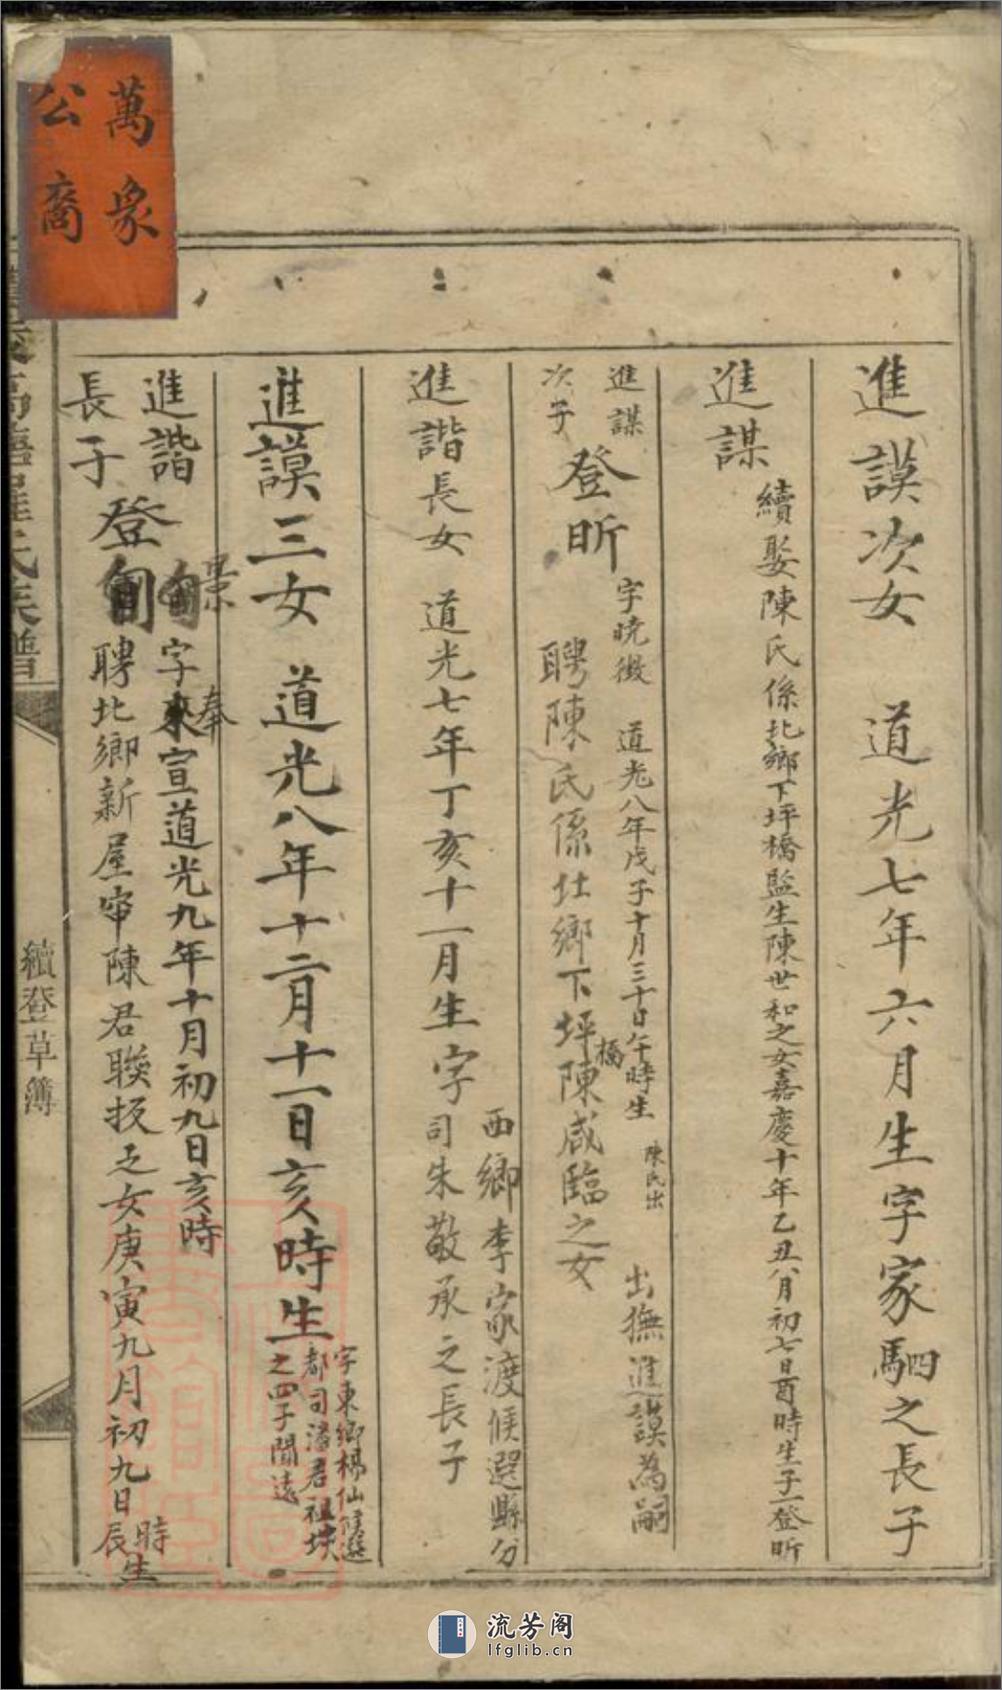 萬眾
公裔
進謨次女 道光七年六月生字家駟之長子
進謀
續娶陳氏係北鄉下坪橋監生陳世和之女嘉慶十年乙丑八月初七日酉時生子一登昕
進謀
次子
登昕
字曉徵 道光八年戊子十月三十日午時生 陳氏出 出撫進謨為嗣
聘陳氏係北鄉下坪橋陳咸臨之女
進諧長女 道光七年丁亥十一月生字
西鄉李家渡候選縣分
司朱敬承之長子
進謨三女 道光八年十二月十一日亥時生
字東鄉楊仙候選
都司潘君祖埉
之四子開遠
進諧
長子
登
景
字奉宣道光九年十月初九日亥時
聘北鄉新屋 陳君聯抜之女庚寅九月初九日辰時生
氏族譜
續登草簿
流芳阁
lfglib.cn